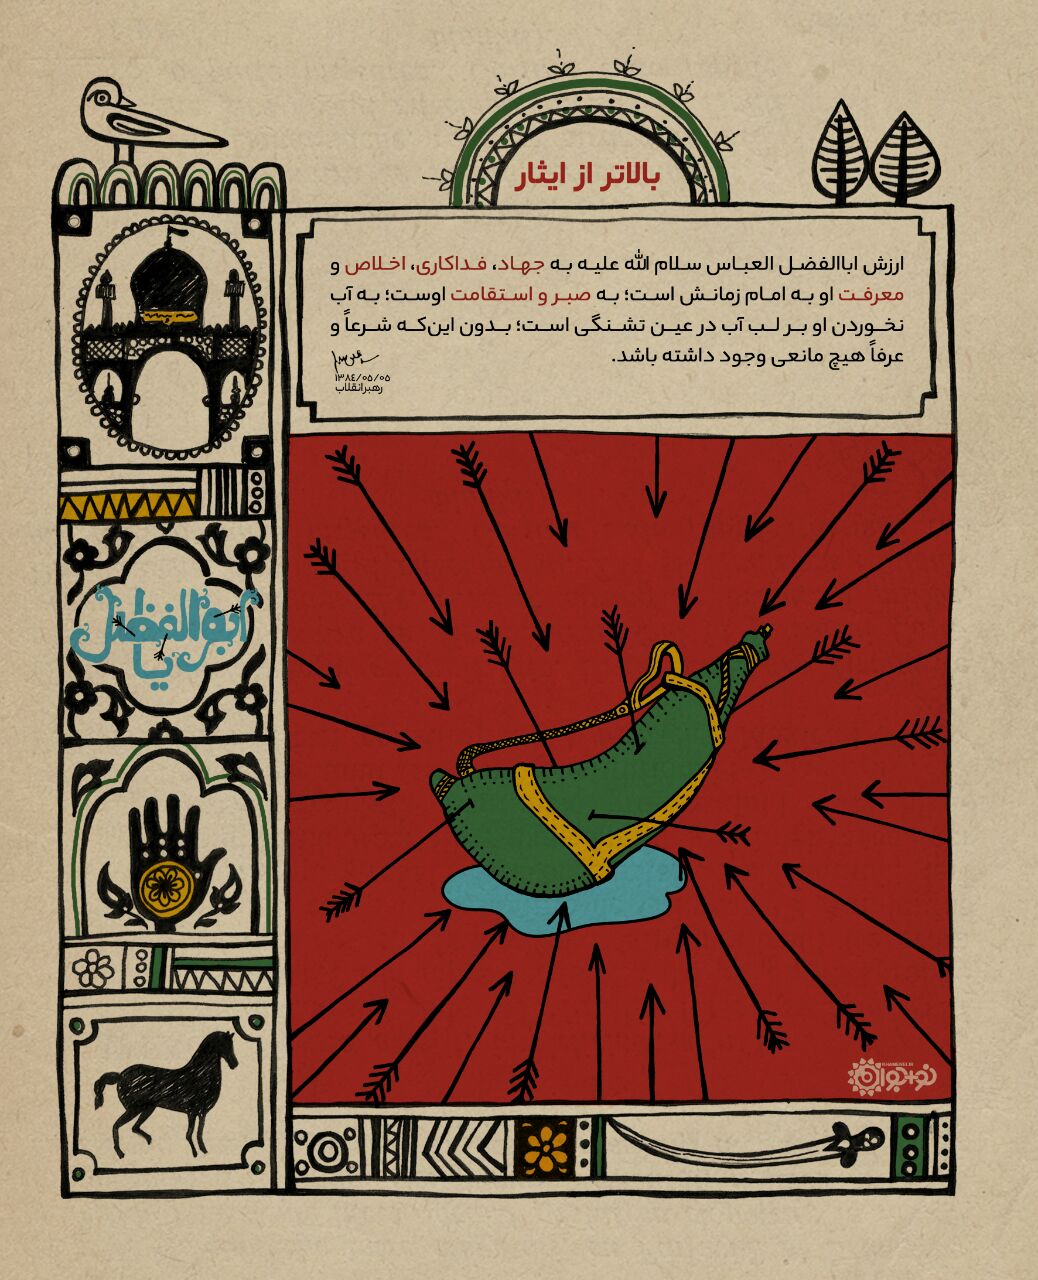 بالاتر از ایثار
ارزش اباالفضل العباس سلام الله علیه به جهاد، فداکاری، اخلاص و
معرفت او به امام زمانش است؛ به صبر و استقامت اوست؛ به آب
نخوردن او بر لب آب در عین تشنگی است؛ بدون این‌که شرعاً و
عرفاً هیچ مانعی وجود داشته باشد.
۱۳۸٤/۰۵/۰۵
رهبرانقلاب
یا ابوالفظل
KHAMENEI.IR
نو+جوان